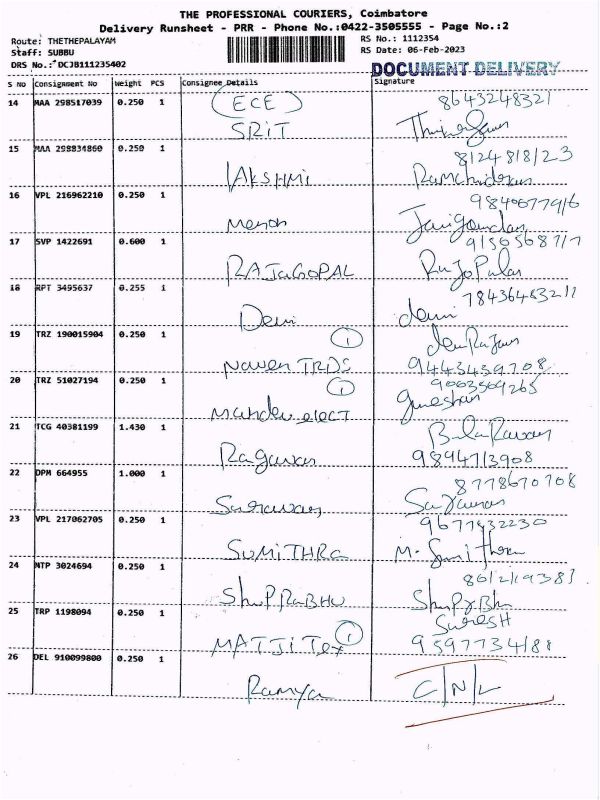 THE PROFESSIONAL COURIERS, Coimbatore
Delivery Runsheet - PRR - Phone No.:0422-3505555 - Page No.:2
Route: THETHEPALAYAM
RS No.: 1112354
Staff: SUBBU
RS Date: 06-Feb-2023
DRS No.: DCJB111235402
DOCUMENT DELIVERY
S No Consignment No Weight PCS Consignee Details Signature
14 MAA 298517039 0.250 1 (ECE) 8643248321
SRIT
15 MAA 298834860 0.250 1 8124818123
LAKSHMI
16 VPL 216962210 0.250 1 9840677916
17 SVP 1422691 0.600 1
RAJAGOPAL
18 RPT 3495637 0.255 1
Devi devi
19 TRZ 190015904 0.250 1 1
Naven TRDS 9443459708
20 TRZ 51027194 0.250 1 1 9003509265
ganeshan
21 TCG 40381199 1.430 1
Ragavan 9894713908
22 DPM 664955 1.000 1 8778670708
Saravanan
23 VPL 217062705 0.250 1 9677432230
SUMITHRA M. Sumithra
24 NTP 3024694 0.250 1
25 TRP 1198094 0.250 1 SURESH
MATJI Tex 1 9597734188
26 DEL 910099800 0.250 1
Ramya C/N/L